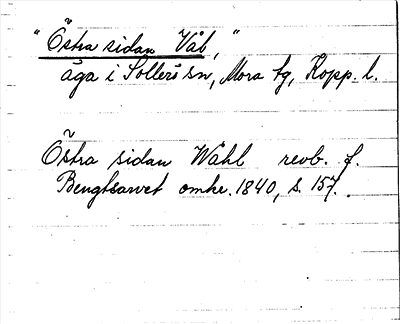 "Östra sidan Vål,"
äga i Sollerö sn, Mora tg, Kopp. l.
Östra sidan Wåhl revb. f.
Bengtsarvet omkr. 1840, s. 157.